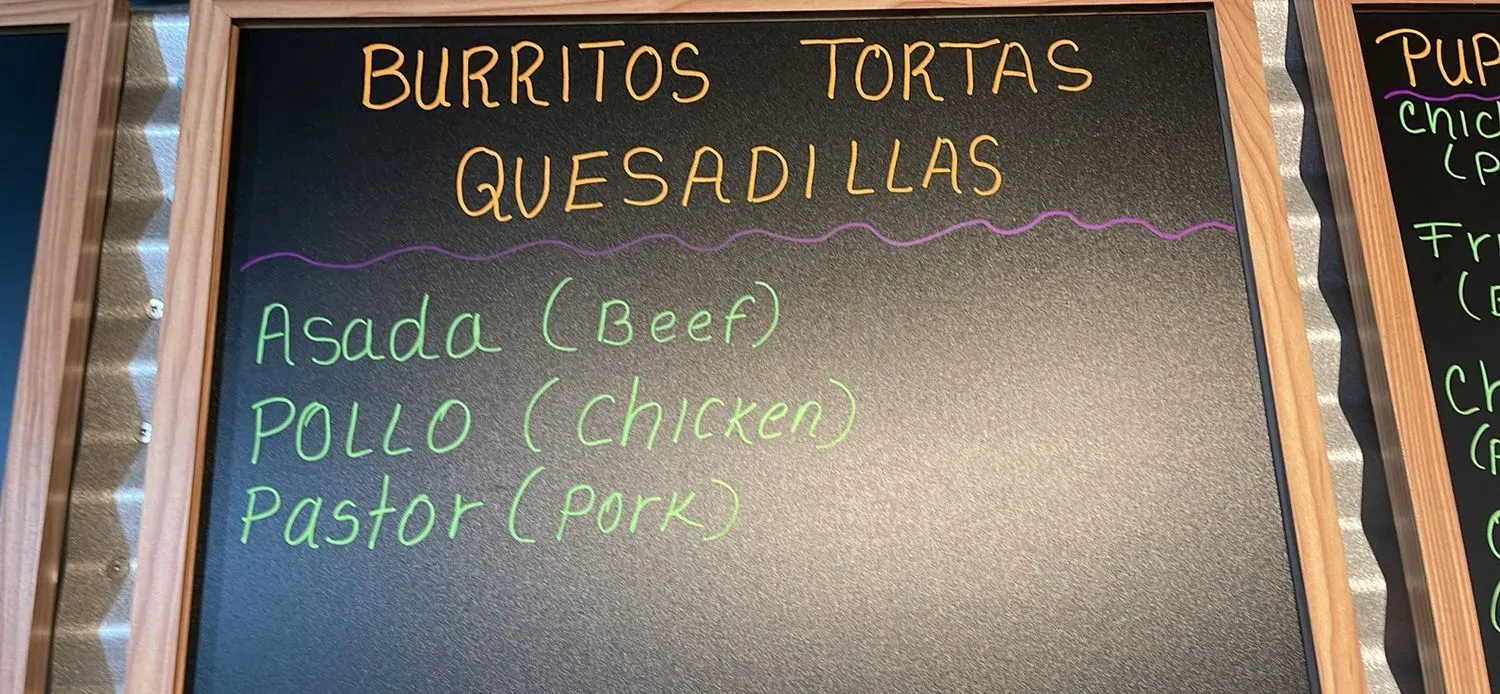 BURRITOS TORTAS
QUESADILLAS
Asada (Beef)
POLLO (Chicken)
Pastor (Pork)